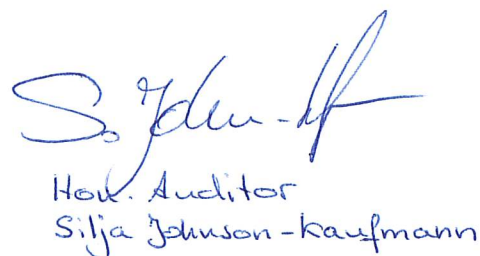 S. John-Kf
Hon. Auditor
Silja Johnson-Kaufmann